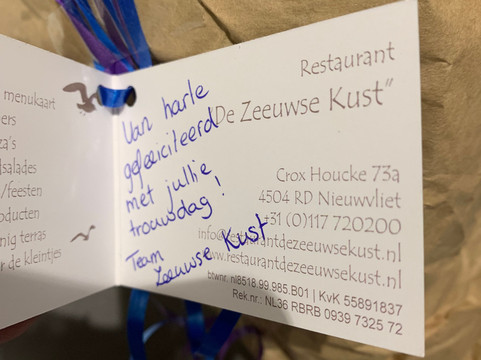 menukaart
ers
za's
dsalades
/feesten
oducten
nig terras
r de kleintjes
Restaurant
De Zeeuwse Kust"
Crox Houcke 73a
4504 RD Nieuwvliet
+31 (0)117 720200
info@restaurantdezeeuwsekust.nl
www.restaurantdezeeuwsekust.nl
btwnr. nl8518.99.985.B01 | KvK 55891837
Rek.nr.: NL36 RBRB 0939 7325 72
Van harte
gefeliciteerd
met jullie
trouwdag!
Team
Zeeuwse Kust